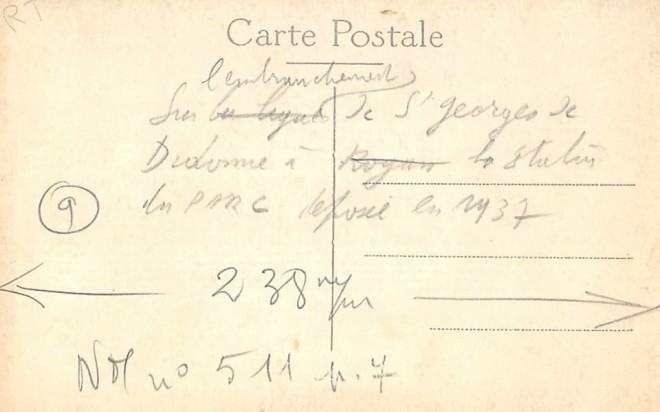 RT
Carte Postale
l'embranchement
Sur la ligne de St georges de
Didonne à Royan la station
du PARC déposée en 1937
9
238 m/m
NM no 511 p. 7